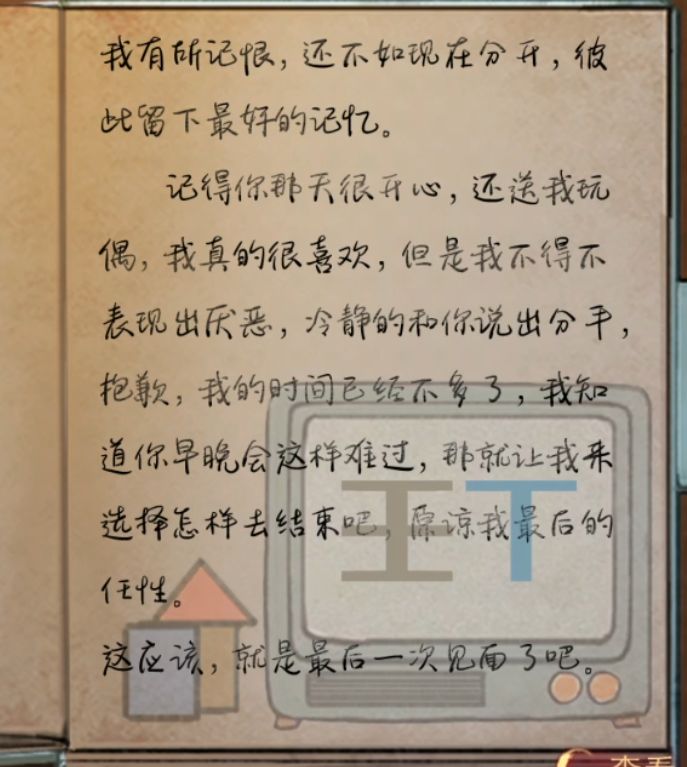 我有所记恨，还不如现在分开，彼
此留下最好的记忆。
记得你那天很开心，还送我玩
偶，我真的很喜欢，但是我不得不
表现出厌恶，冷静的和你说出分手，
抱歉，我的时间已经不多了，我知
道你早晚会这样难过，那就让我来
选择怎样去结束吧，原谅我最后的
任性。
这应该，就是最后一次见面了吧。
工T